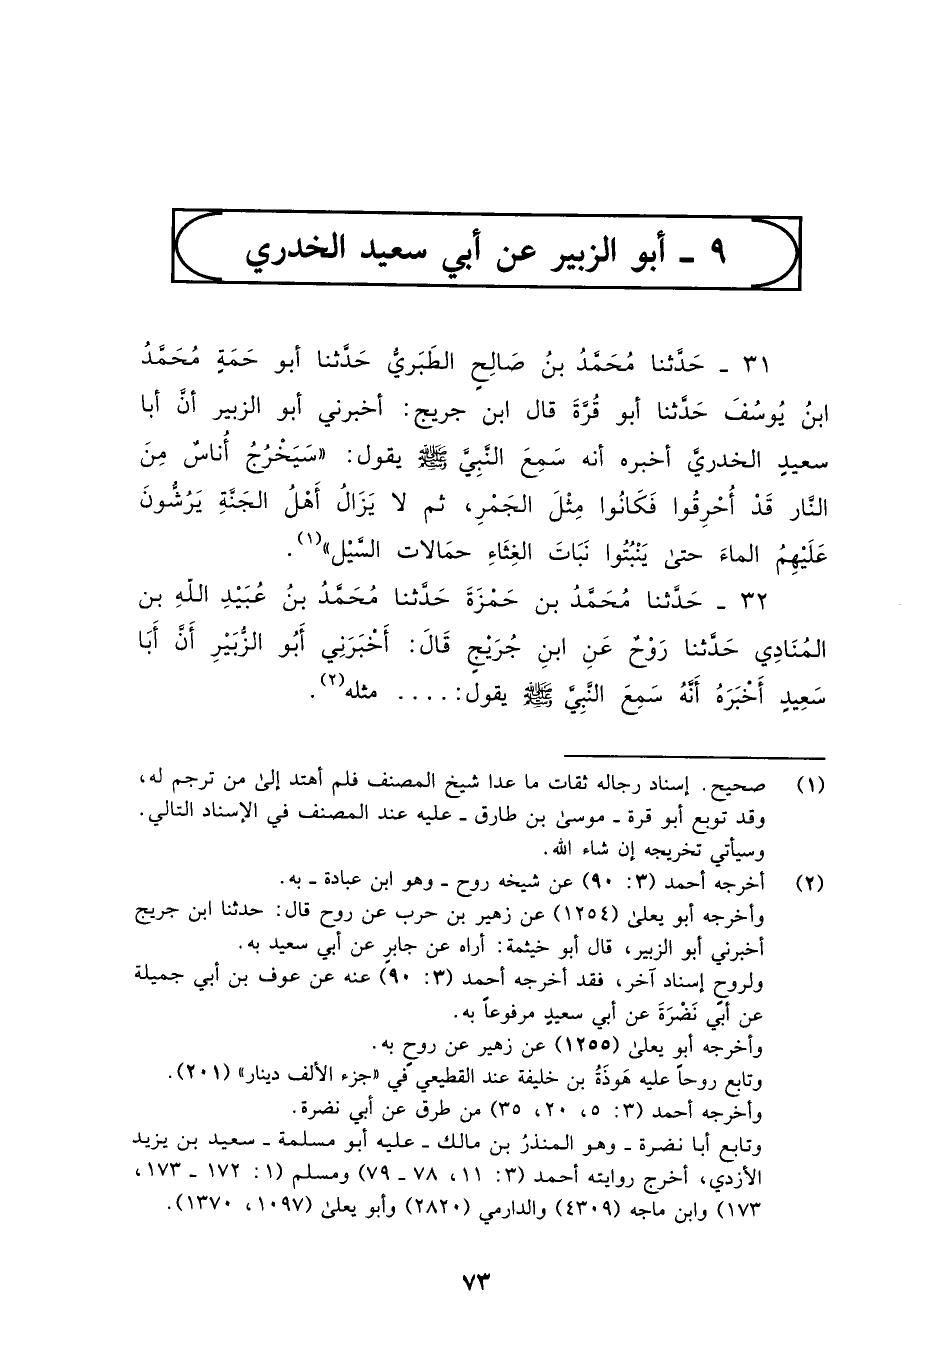 ٩ ـ أبو الزبير عن أبي سعيد الخدري
٣١ ـ حَدَّثنا مُحَمَّدُ بنُ صَالِحٍ الطَبَريُّ حَدَّثنا أبو حَمَةٍ مُحَمَّدُ
ابنُ يُوسُفَ حَدَّثنا أبو قُرَّةَ قال ابن جريج: أخبرني أبو الزبير أنَّ أبا
سعيدٍ الخدريَّ أخبره أنه سَمِعَ النَّبِيَّ ﷺ يقول: «سَيَخْرُجُ أُناسٌ مِنَ
النَّار قَدْ أُحْرِقُوا فَكَانُوا مِثْلَ الجَمْرِ، ثم لا يَزَالُ أَهْلُ الجَنَّةِ يَرُشُّونَ
عَلَيْهِمُ الماءَ حتىٰ يَنْبُتُوا نَبَاتَ الغِثَاءِ حمَالات السَّيْل»(١).
٣٢ ـ حَدَّثنا مُحَمَّدُ بن حَمْزَةَ حَدَّثنا مُحَمَّدُ بنُ عُبَيْدِ اللّهِ بن
المُنَادِي حَدَّثنا رَوْحٌ عَنِ ابنِ جُرَيْجٍ قَالَ: أَخْبَرَنِي أَبُو الزُّبَيْرِ أَنَّ أَبَا
سَعِيدٍ أَخْبَرَهُ أَنَّهُ سَمِعَ النَّبِيَّ ﷺ يقول: .... مثله(٢).
(١) صحيح. إسناد رجاله ثقات ما عدا شيخ المصنف فلم أهتد إلىٰ من ترجم له،
وقد توبع أبو قرة ـ موسىٰ بن طارق ـ عليه عند المصنف في الإسناد التالي.
وسيأتي تخريجه إن شاء الله.
(٢) أخرجه أحمد (٣: ٩٠) عن شيخه روح ـ وهو ابن عبادة ـ به.
وأخرجه أبو يعلىٰ (١٢٥٤) عن زهير بن حرب عن روح قال: حدثنا ابن جريج
أخبرني أبو الزبير، قال أبو خيثمة: أراه عن جابرٍ عن أبي سعيد به.
ولروحٍ إسناد آخر، فقد أخرجه أحمد (٣: ٩٠) عنه عن عوف بن أبي جميلة
عن أبي نَضْرَةَ عن أبي سعيدٍ مرفوعاً به.
وأخرجه أبو يعلىٰ (١٢٥٥) عن زهير عن روحٍ به.
وتابع روحاً عليه هَوذَةُ بن خليفة عند القطيعي في «جزء الألف دينار» (٢٠١).
وأخرجه أحمد (٣: ٥، ٢٠، ٣٥) من طرق عن أبي نضرة.
وتابع أبا نضرة ـ وهو المنذرُ بن مالك ـ عليه أبو مسلمة ـ سعيد بن يزيد
الأزدي، أخرج روايته أحمد (٣: ١١، ٧٨ ـ ٧٩) ومسلم (١: ١٧٢ ـ ١٧٣،
١٧٣) وابن ماجه (٤٣٠٩) والدارمي (٢٨٢٠) وأبو يعلىٰ (١٠٩٧، ١٣٧٠).
٧٣